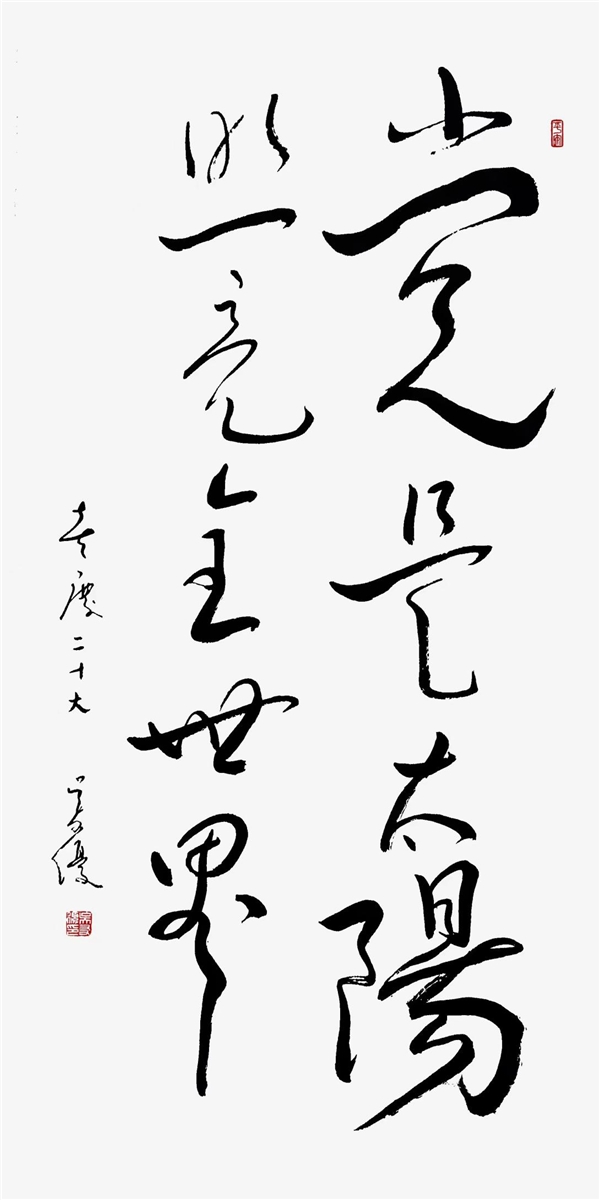 党是太陽
照亮全世界
喜慶二十大